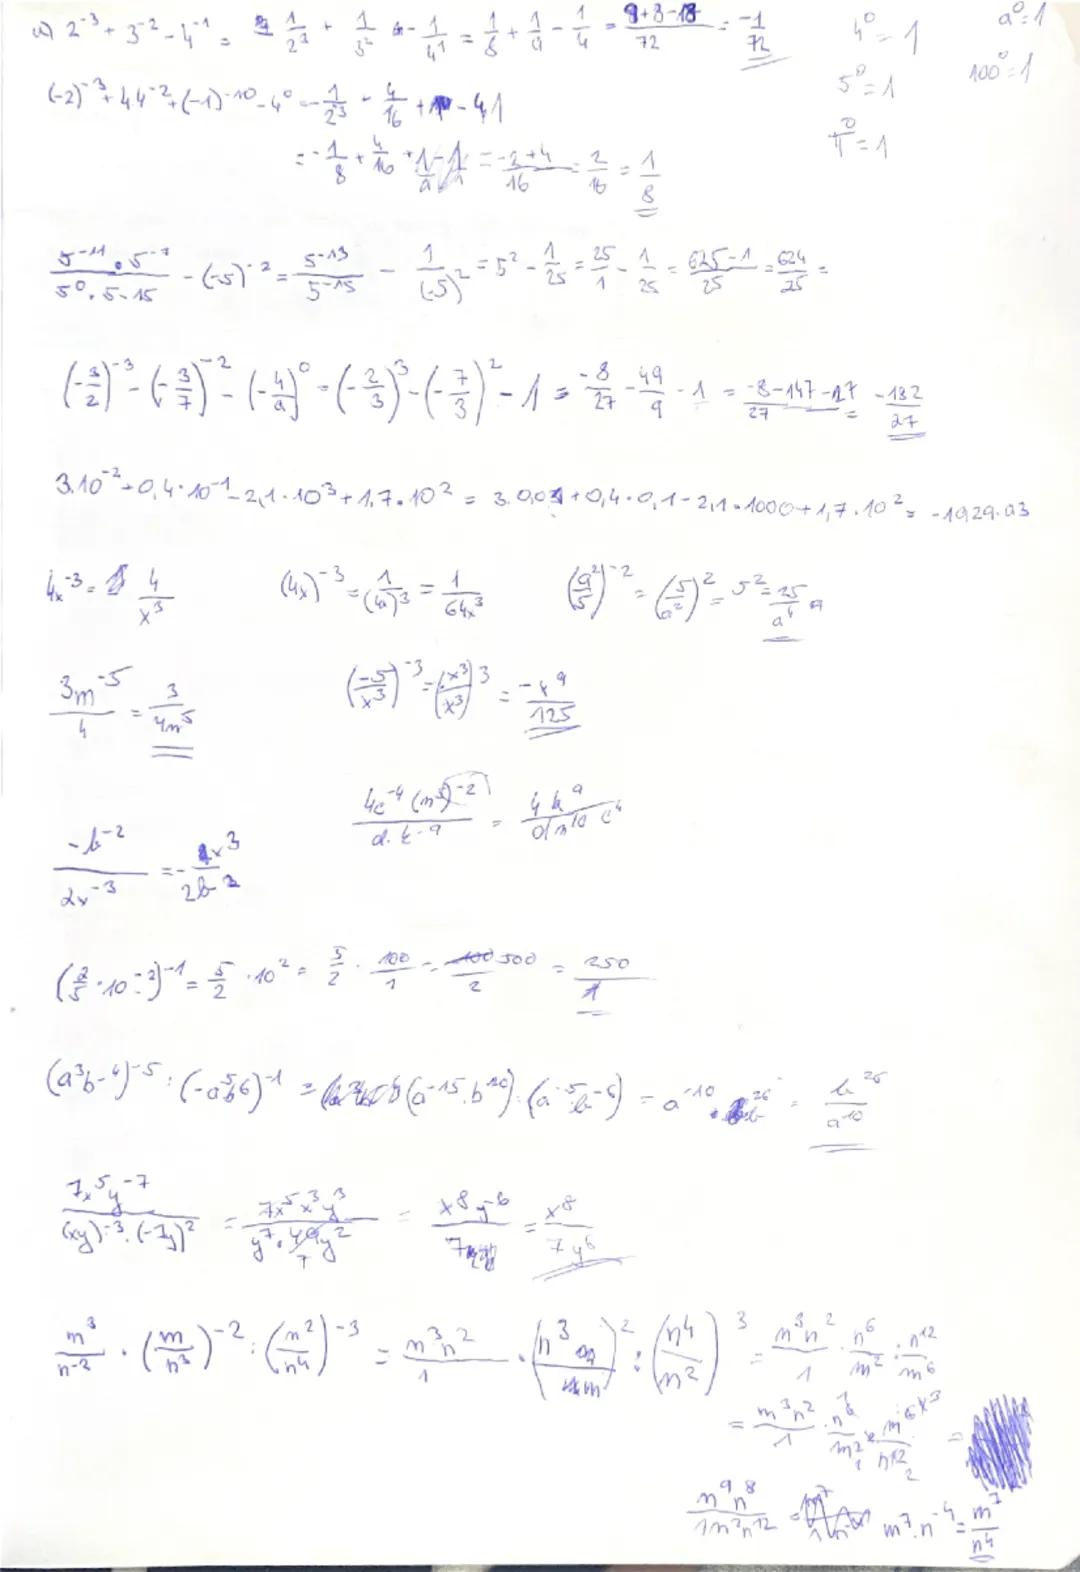 a) 2⁻³ + 3⁻² - 4⁻¹ = 1/2³ + 1/3² - 1/4¹ = 1/8 + 1/9 - 1/4 = (9+8-18)/72 = -1/72
4⁰ = 1
a⁰ = 1
5⁰ = 1
100⁰ = 1
π⁰ = 1
(-2)⁻³ + 4·4⁻² + (-1)⁻¹⁰ - 4⁰ = -1/2³ + 4/16 + 1 - 1
= -1/8 + 4/16 + 1 - 1 = (-2+4)/16 = 2/16 = 1/8
(5⁻¹¹ · 5⁻²)/(5⁰ · 5⁻¹⁵) - (-5)⁻² = 5⁻¹³/5⁻¹⁵ - 1/(-5)² = 5² - 1/25 = 25/1 - 1/25 = (625-1)/25 = 624/25 =
(-3/2)⁻³ - (-3/7)⁻² - (-4/9)⁰ = (-2/3)³ - (-7/3)² - 1 = -8/27 - 49/9 - 1 = (-8-147-27)/27 = -182/27
3·10⁻² + 0,4·10⁻¹ - 2,1·10³ + 1,7·10² = 3·0,01 + 0,4·0,1 - 2,1·1000 + 1,7·10² = -1929.93
4x⁻³ = 4/x³
(4x)⁻³ = 1/(4x)³ = 1/64x³
(a²/5)⁻² = (5/a²)² = 5² = 25/a⁴
3m⁻⁵/4 = 3/4m⁵
(-5/x³)⁻³ = (x³/x³)³ = -x⁹/125
4c⁻⁴(m⁵)⁻²/d·k⁻⁹ = 4k⁹/dm¹⁰c⁴
-b⁻²/2x⁻³ = -1x³/2b²
(2/5 · 10⁻²)⁻¹ = 5/2 · 10² = 5/2 · 100/1 = 500/2 = 250/1
(a³b⁻⁴)⁻⁵ : (-a⁵b⁶)⁻¹ = (a⁻¹⁵·b²⁰) : (a⁻⁵b⁻⁶) = a⁻¹⁰ · b²⁶ = b²⁶/a¹⁰
7x⁵y⁻⁷/(xy)⁻³·(-7y)² = 7x⁵x³y³/y⁷·49y² = x⁸y⁻⁶/7 = x⁸/7y⁶
m³/n⁻² · (m/n³)⁻² : (m²/n⁴)⁻³ = m³n²/1 · (n³/m)² : (n⁴/m²)³ = m³n²/1 · n⁶/m² : n¹²/m⁶
= m³n²/1 · n⁶/m² × m⁶/n¹² =
m⁹n⁸/1m²n¹² = m⁷·n⁻⁴ = m⁷/n⁴